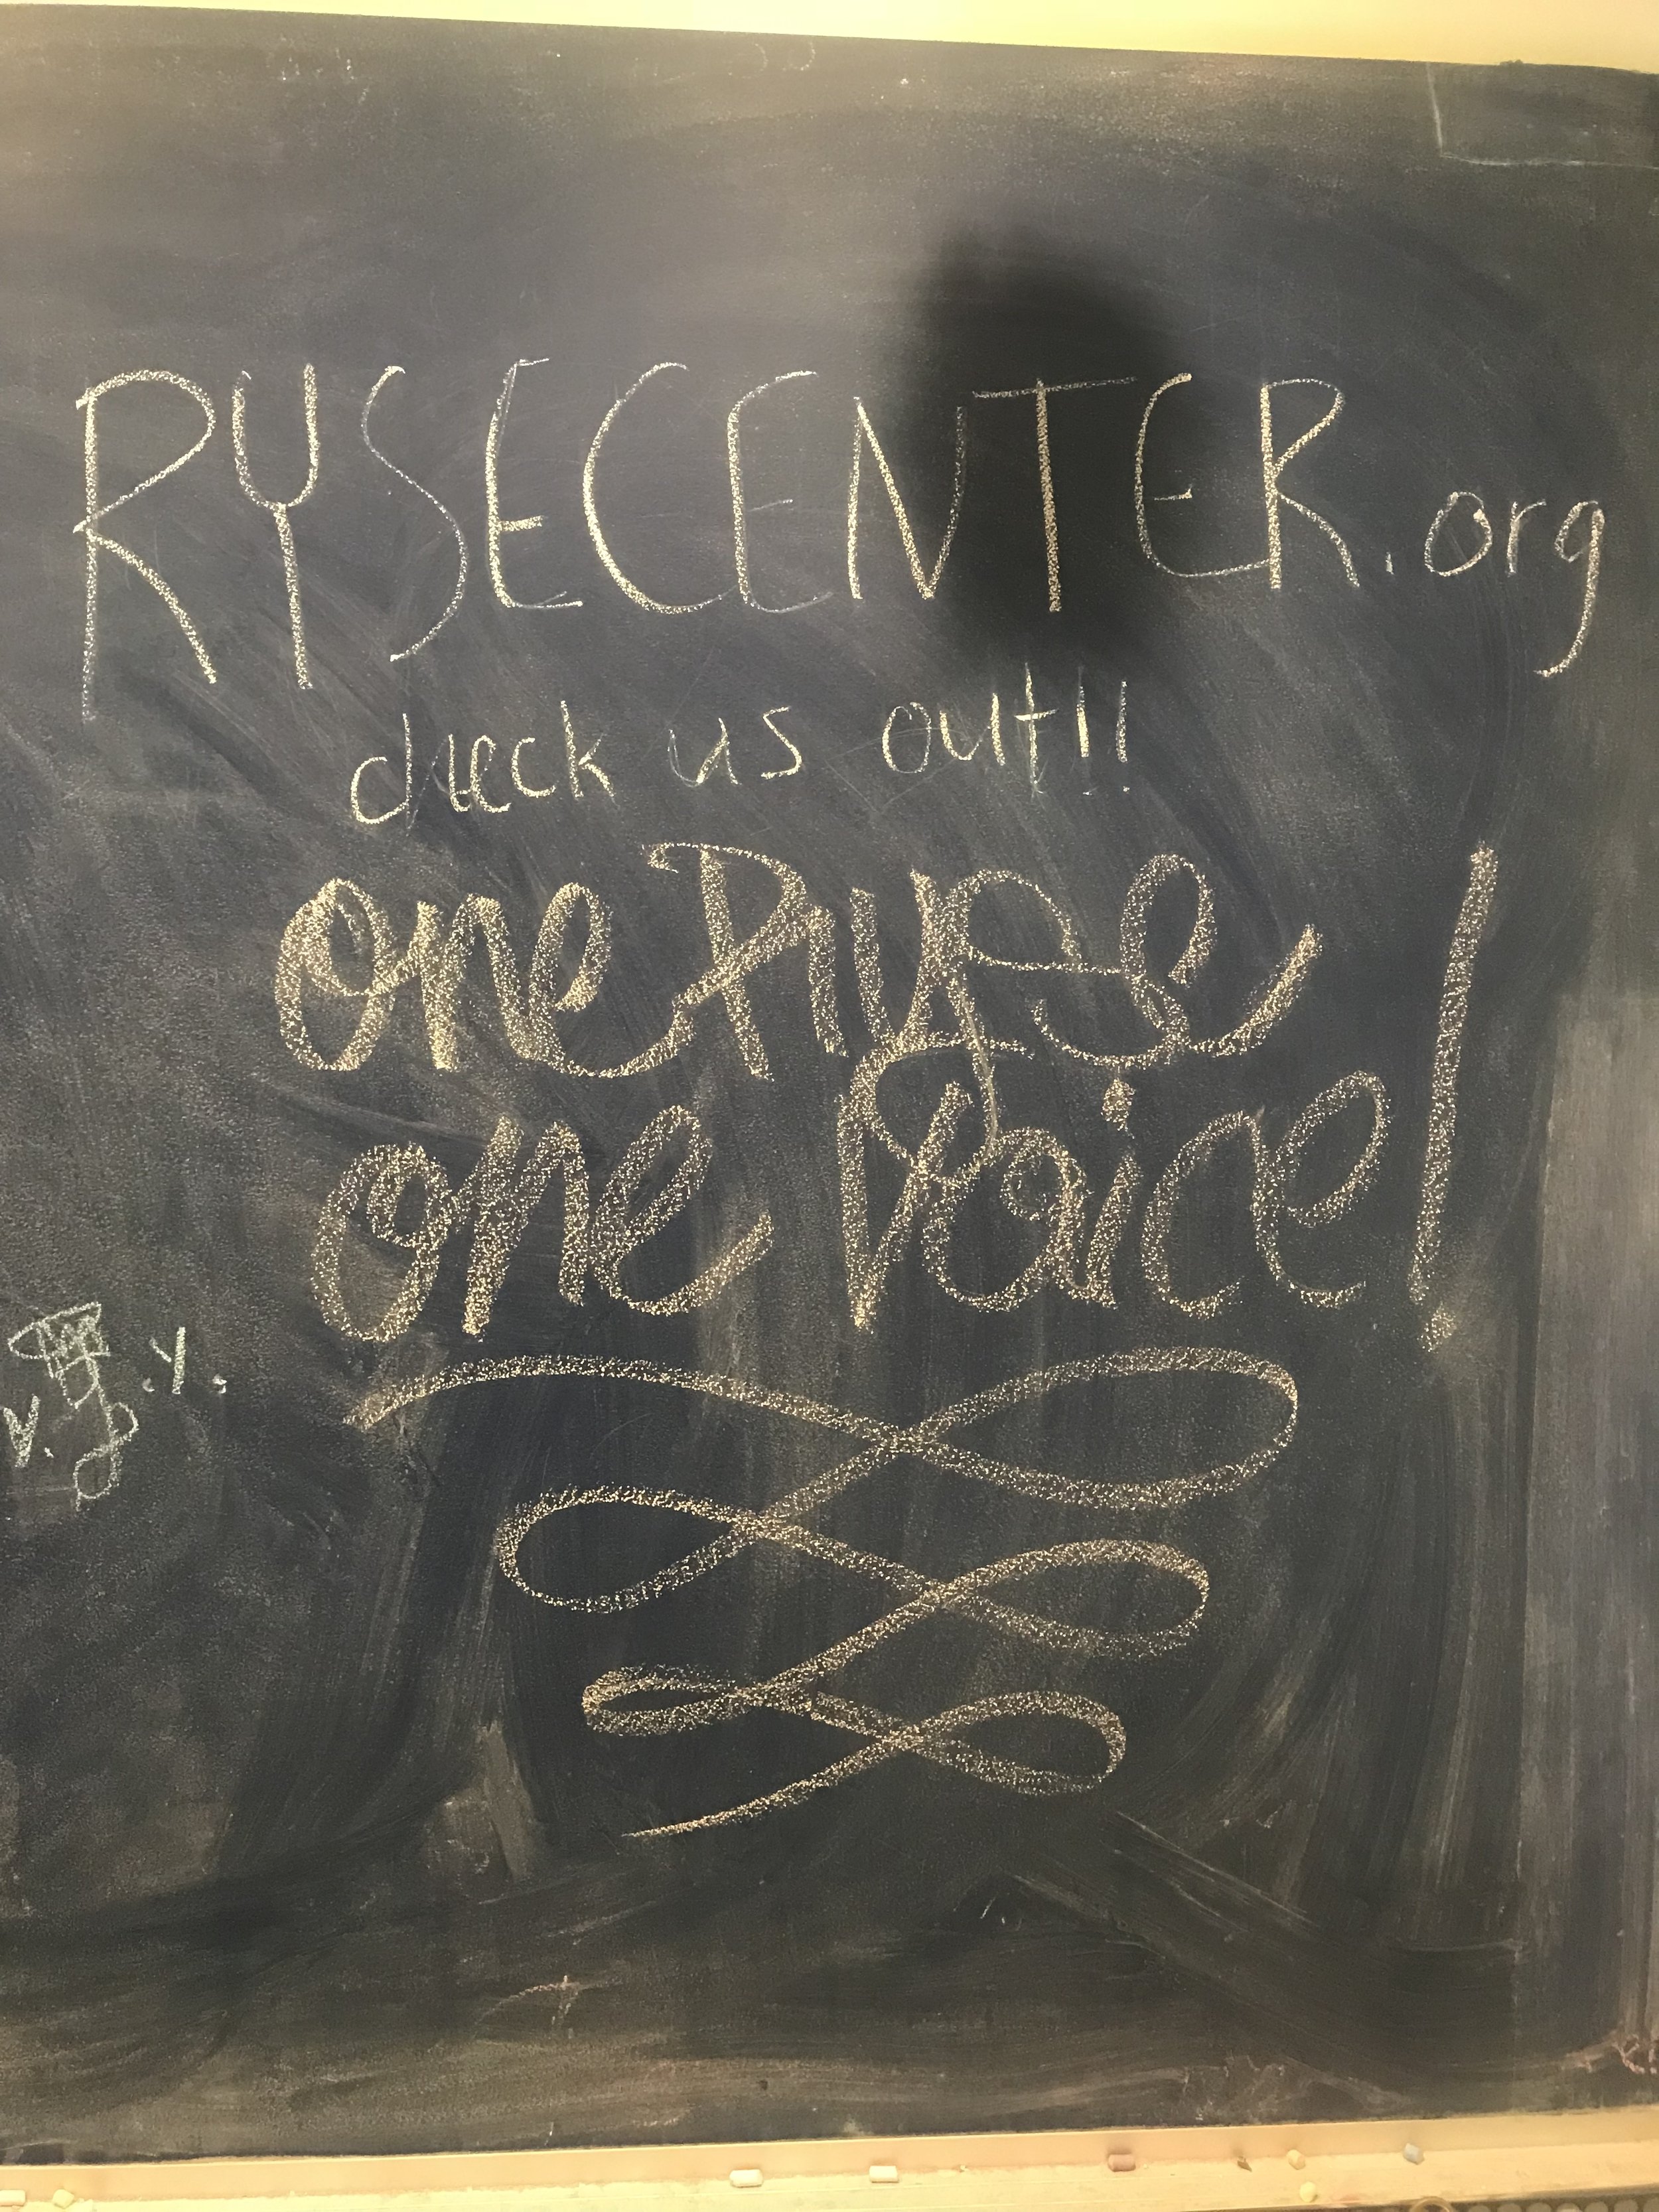 RYSECENTER.org
check us out!!
one Ryse
one Voice!